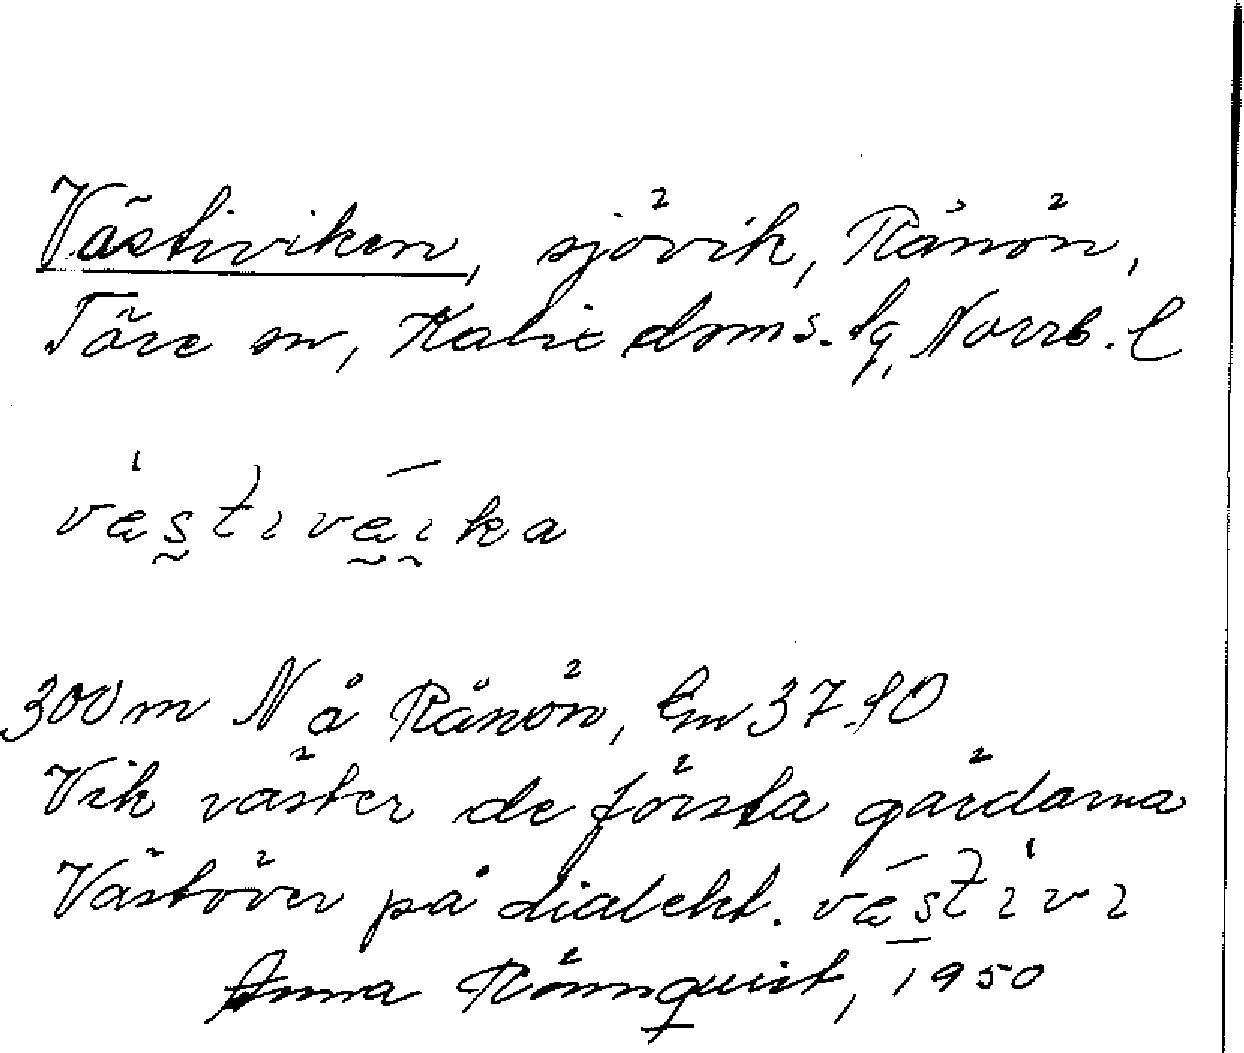 Västiviken, sjövik, Rånön,
Töre sn, Kalix doms.lg, Norrb. l
västivæika
300 m N å Rånön, Em 37 10
Vik väster de första gårdarna
Västöver på dialekt. væstivi
Anna Rönnquist, 1950